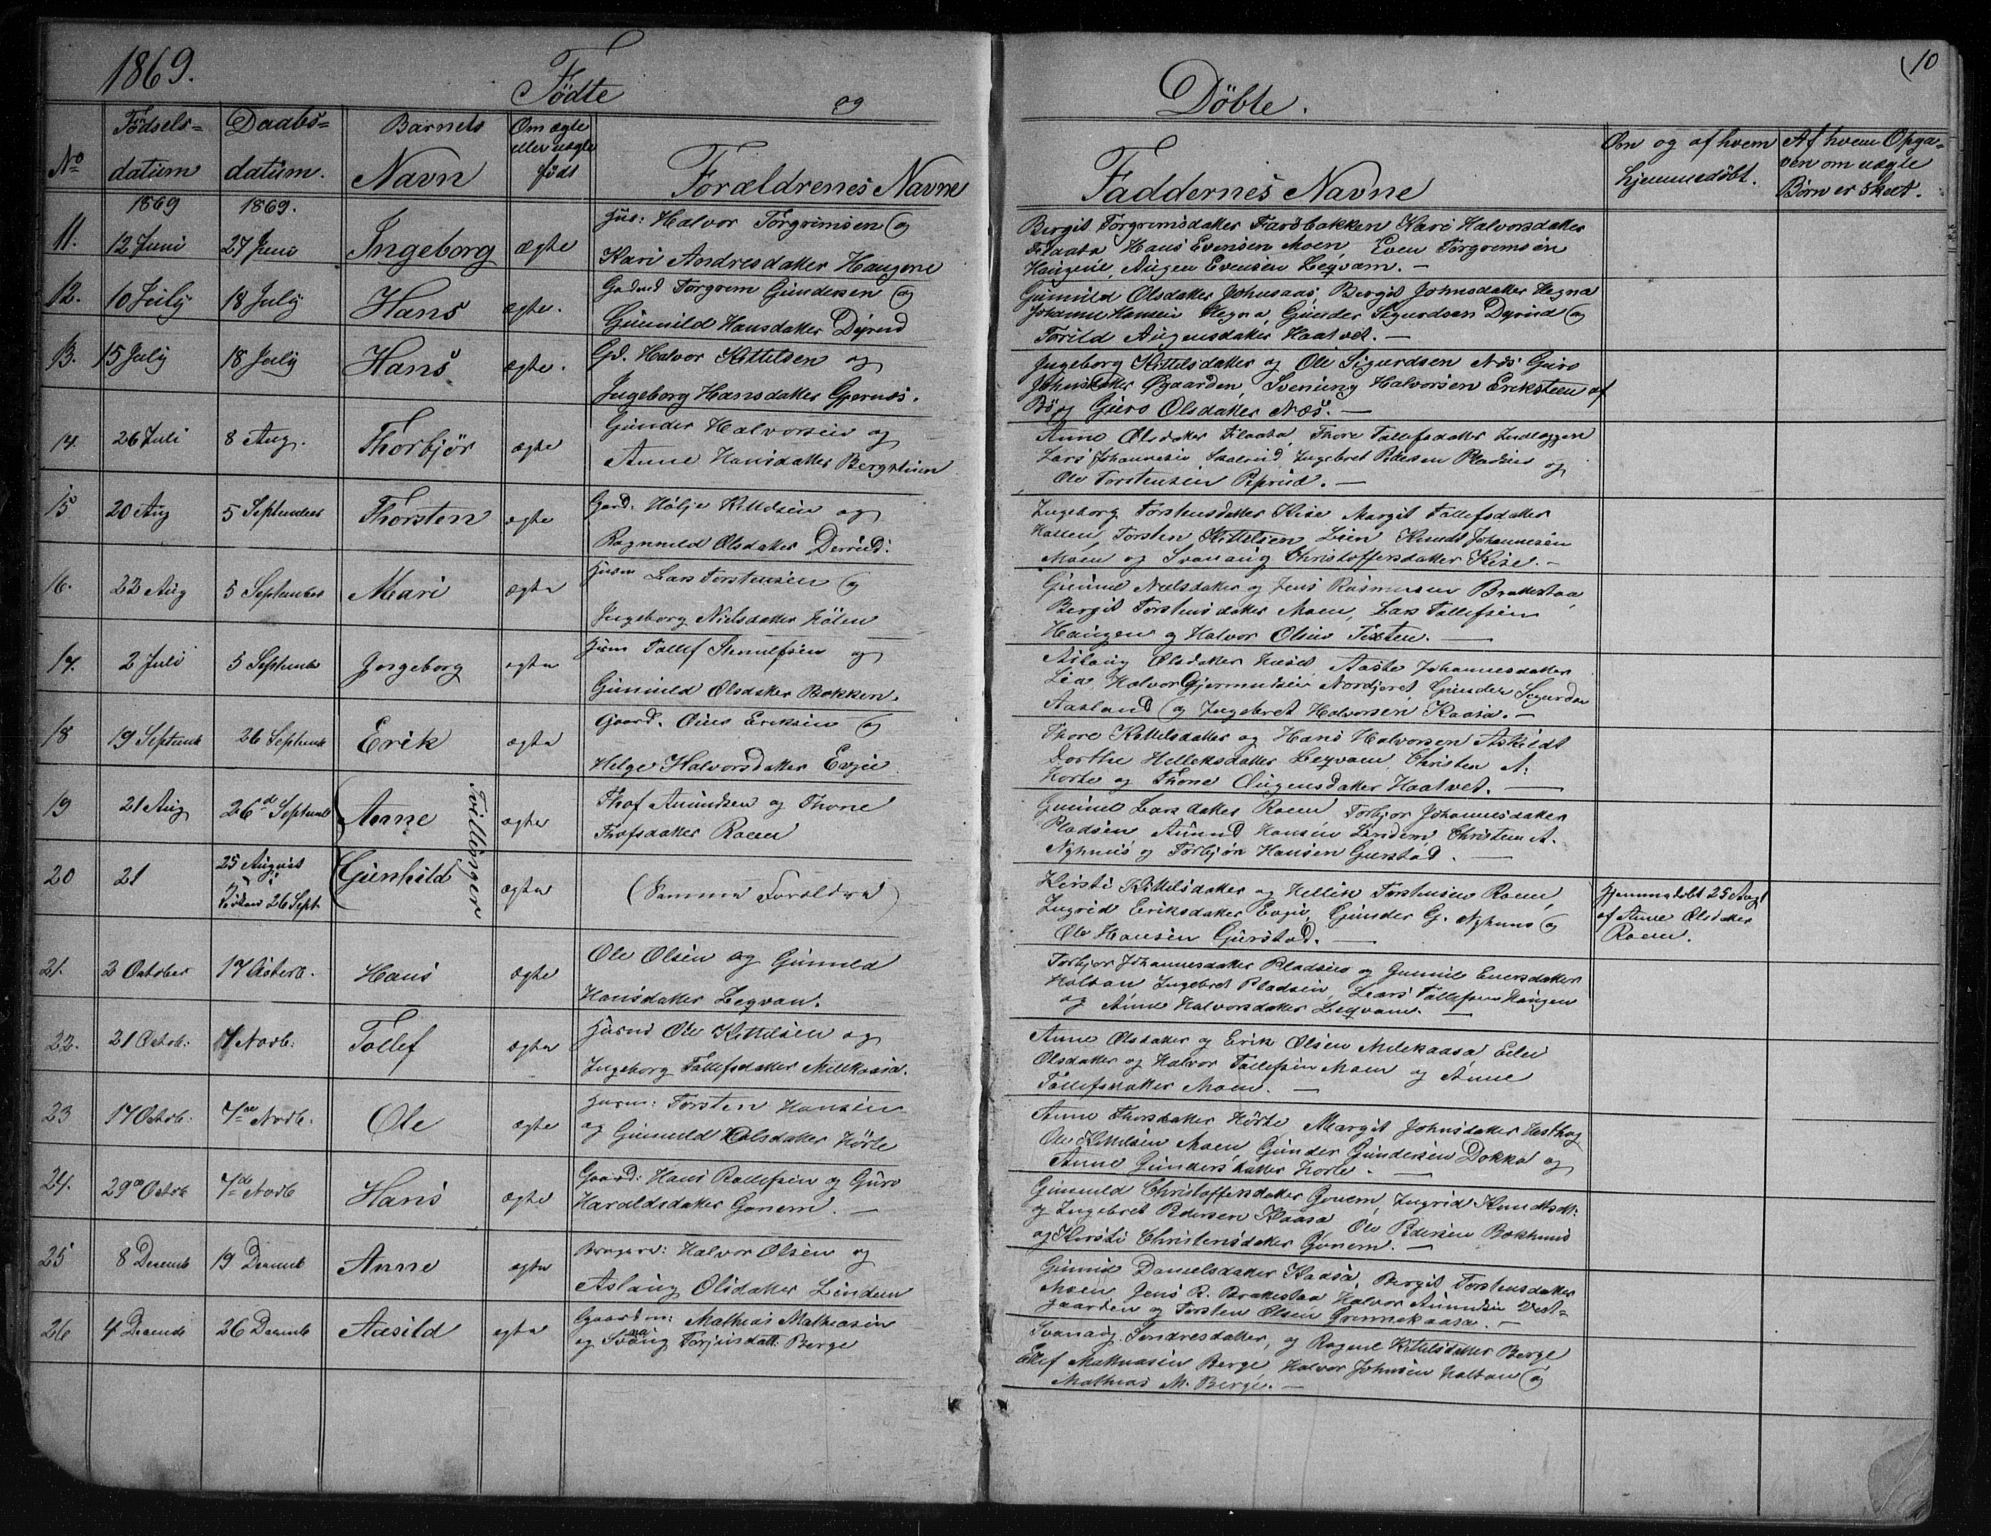 1869.
Fødte
og
Døbte.
10
No
Fødsels-
datum
Daabs-
datum.
Barnets
Navn
Om ægte
eller uægte
født
Forældrenes Navne
Faddernes Navne
Om og af hvem
hjemmedøbt.
Af hvem Opga-
ven om uægte
Børn er skeet.
1869
1869.
11.
12 Juni
27 Juni
Ingeborg
ægte
Hus: Halvor Torgrimsen og
Kari Andresdatter Haugene
Bergit Torgremsdatter Farosbakken Kari Halvorsdatter
Flaata Hans Evensen Moen, Even Torgremsen
Haugene, Augen Evensen Legvam. -
12.
10 July
18 July
Hans
ægte.
Torgrem Gundersen og
Gunnild Hansdatter Dyrud
Gunnild Olsdatter Johnsaas, Bergit Johnsdatter Hegna
Johanne Hansen Hegna, Gunder Sigurdsen Dyrud og
Torild Augensdatter Haatvet. -
13.
15 July
18 July
Hans
ægte.
Gd. Halvor Kittelsen og
Ingeborg Hansdatter Gjernes.
Ingeborg Kittelsdatter og Ole Sigurdsen Næs Guro
Johnsdatter Øgaarden, Svenung Halvorsen Eriksteen af
Bø og Guro Olsdatter Næs. -
14.
26 Juli
8 Aug.
Thorbjør
ægte
Gunder Halvorsen og
Anne Hansdatter Bergstuen
Anne Olsdatter Flaata, Thore Tallefsdatter
Lars Johannesen Skalrud, Ingebret Pedersen Pladsen og
Ole Torstensen Peprud. -
15
20 Aug
5 September
Thorsten
ægte
Gard. Hølje Kittelsen og
Ragnnild Olsdatter Dyrrud:
Ingeborg Torstensdatter Kise Margit Tollefsdatter
Hallen, Torsten Kittelsen Lien Knudt Johannesen
Moen og Svanaug Christoffersdatter Kise. -
16.
22 Aug
5 September
Mari
ægte
Husm Lars Torstensen og
Ingeborg Nielsdatter Hølen
Gunnil Nielsdatter og Jens Rasmussen Brakestaa,
Bergit Torstensdatter Moen, Lars Tollefsen
Haugen og Halvor Olsen Teksten. -
17.
2 Juli
5 Septemb
Ingeborg
ægte
Husm Tollef Stenulfsen og
Gunnild Olsdatter Bakken.
Aslaug Olsdatter Aaste Johannesdatter
Lia, Halvor Gjermundsen Nordjeret Gunder Sigurdsn
Aasland og Ingebret Halvorsen Kaasa. -
18
19 Septemb
26 Septemb
Erik
ægte
Gaard. Eriksen og
Helge Halvorsdatter Evju
Thore Kittelsdatter og Hans Halvorsen Askildt
Dorthe Helleksdatter Legvam, Christen A.
Horte og Thone Augensdatter Haatvet. -
19
21 Aug
26d Septemb
Anne
Tvillinger
ægte
Thof Amundsen og Thone
Thofsdatter Roem
Gunnil Larsdatter Roem Torbjor Johannesdatter
Pladsen Amund Hansen Lindem, Christen A.
Nyhuus og Torbjøn Hansen Gurstad. -
20
21
25 August
Kirken 26 Sept.
Gunhild
ægte
(Samme Foroldre)
Kirsti Kittelsdatter og Hellek Torstensen Roem,
Ingrid Eriksdatter Evju, Gunder G. Nyhuus og
Ole Hansen Gurstad. -
Hjemmedobt 25 Aug
af Anne Olsdatter
Roem.
21.
2 October
17 Octob.
Hans
ægte
Ole Olsen og Gunnild
Hansdatter Legvam.
Torbjor Johannesdatter Pladsen og Gunnil Evensdatter
Holtan Ingebret Pladsen, Lars Tollefsen Haugen
og Anne Halvorsdatter Legvam. -
22.
21 Octob:
7 Novb.
Tollef
ægte
Husmd Ole Kittelsen og
Ingeborg Tollefsdatter Milekaasa.
Anne Olsdatter og Erik Olsen Milekaasa
Olsdatter og Halvor Tollefsen Moen og Anne
Tollefsdatter Moen. -
23
17 Octob.
7de Novb.
Ole
ægte
Husm: Torsten Hansen
og Gunnuld Olsdatter Hørte
Anne Thorsdatter Hørte Margit Johnsdatter Hesthag
Ole Kittelsen Moen, Gunder Gundersen Dokka og
Anne Gundersdatter Horte. -
24.
29de Octob
7de Novb
Hans
ægte
Gaard: Hans Rollefsen og Guro
Haraldsdatter Gonem. -
Gunnuld Christoffersdatter Gonem, Ingrid Knudtsdt:
og Ingebret Pedersen Kaasa Ole Pedersen Bokhuus
og Kirsti Christensdatter Gonem. -
25
8 Decemb
19 Decemb
Anne
ægte
Brugere: Halvor Olsen og
Aslaug Olsdatter Lindem
Gunnild Danielsdatter Kaasa, Bergit Torstensdatter
Moen, Jens R. Brakestaa Halvor Amundsen Vest-
gaarden og Torsten Olsen Grinnekaasa. -
26
4 Decemb
26 Decemb
Aasild
ægte
Gaardm: Mathias Mathiasen
og Svanaug Torjusdatt: Berge
Svanaug Sondresdatter, og Ragnil Kittelsdatter Berge
Ellef Mathiasen Berge, Halvor Johnsen Holtan og
Mathias M. Berge. -